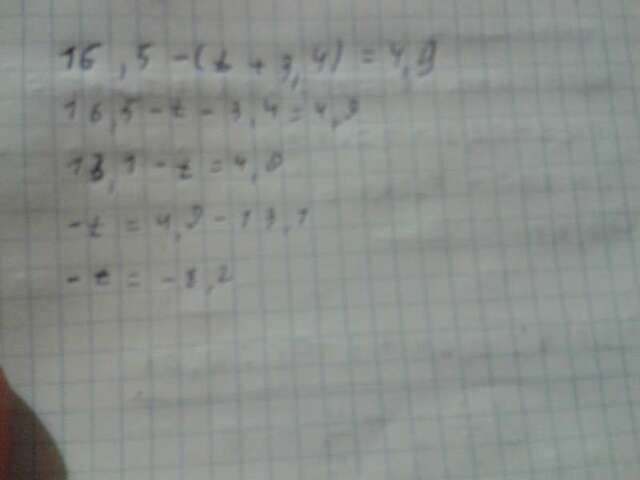 16,5 - (t + 3,4) = 4,9
16,5 - t - 3,4 = 4,9
13,1 - t = 4,9
-t = 4,9 - 13,1
-t = -8,2